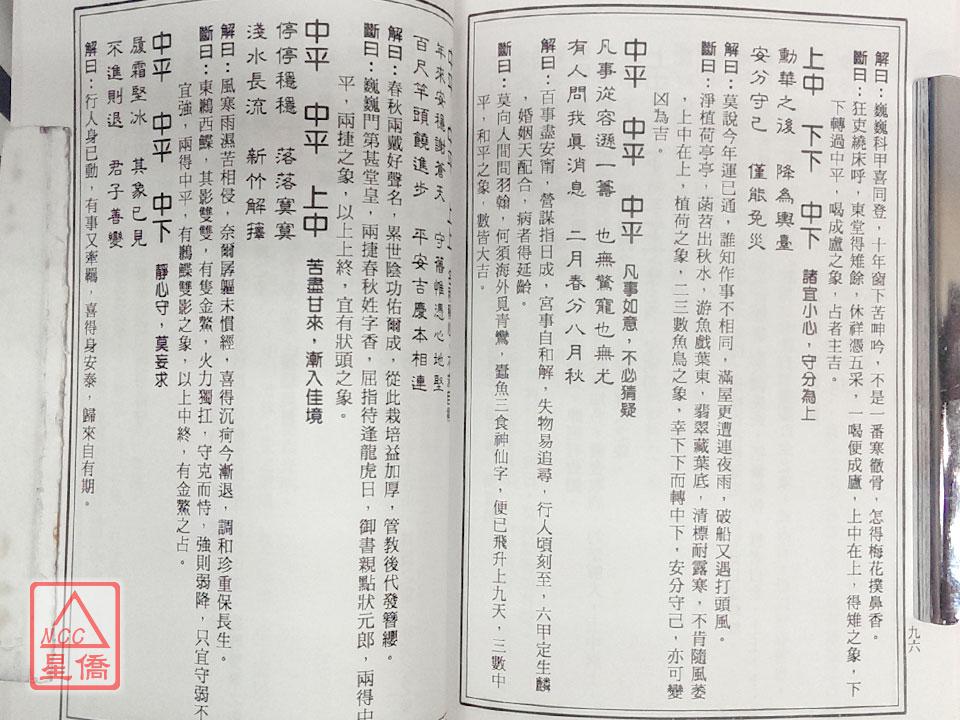 解曰：巍巍科甲喜同登，十年窗下苦呻吟，不是一番寒徹骨，怎得梅花撲鼻香。
斷曰：狂吏繞床呼，東堂得雉餘，休祥憑五采，一喝便成盧，上中在上，得雉之象，下
下轉過中平，喝成盧之象，占者主吉。
上中　下下　中下　諸宜小心，守分為上
勳華之後　降為輿臺
安分守己　僅能免災
解曰：莫說今年運已通，誰知作事不相同，滿屋更遭連夜雨，破船又遇打頭風。
斷曰：淨植荷亭亭，菡萏出秋水，游魚戲葉東，翡翠藏葉底，清標耐露寒，不肯隨風萎
，上中在上，植荷之象，二三數魚鳥之象，幸下下而轉中下，安分守己，亦可變
凶為吉。
中平　中平　中平　凡事如意，不必猜疑
凡事從容遜一籌　也無驚寵也無尤
有人問我真消息　二月春分八月秋
解曰：百事盡安甯，營謀指日成，宮事自和解，失物易追尋，行人頃刻至，六甲定生麟
，婚姻天配合，病者得延齡。
斷曰：莫向人間問羽翰，何須海外覓青鸞，蠹魚三食神仙字，便已飛升上九天，三數中
平，和平之象，數皆大吉。
九六
年來安穩謝蒼天　守舊惟憑心地堅
百尺竿頭饒進步　平安吉慶本相連
解曰：春秋兩戴好聲名，累世陰功佑爾成，從此栽培益加厚，管教後代發簪纓。
斷曰：巍巍門第甚堂皇，兩捷春秋姓字香，屈指待逢龍虎日，御書親點狀元郎，兩得中
平，兩捷之象，以上上終，宜有狀頭之象。
中平　中平　上中　苦盡甘來，漸入佳境
停停穩穩　落落寞寞
淺水長流　新竹解籜
解曰：風寒雨濕苦相侵，奈爾孱軀未慣經，喜得沉疴今漸退，調和珍重保長生。
斷曰：東鶼西鰈，其影雙雙，有隻金鰲，火力獨扛，守克而恃，強則弱降，只宜守弱不
宜強，兩得中平，有鶼鰈雙影之象，以上中終，有金鰲之占。
中平　中平　中下　靜心守，莫妄求
履霜堅冰　其象已見
不進則退　君子善變
解曰：行人身已動，有事又牽羈，喜得身安泰，歸來自有期。
NCC
星僑